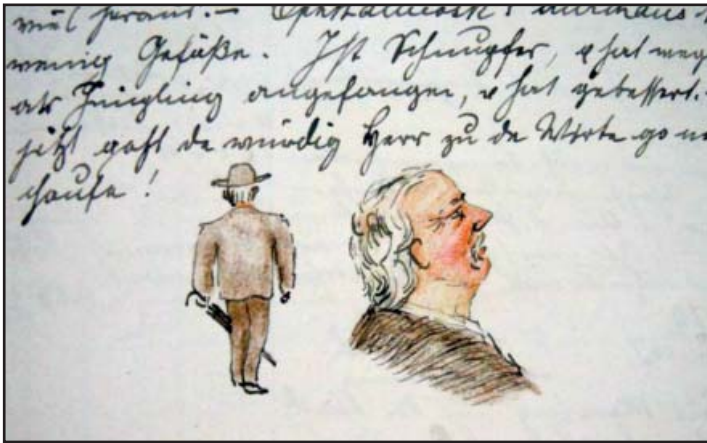 viel heraus. –
wenig Gefäße. Ist Schnupfer, hat weg
als Jüngling angefangen, hat gebessert.
jetzt goht de würdig Herr zu de Wirte go
chaufe!